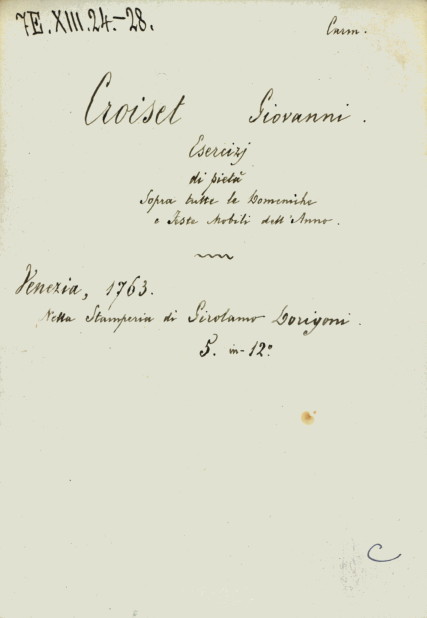 7E.XIII.24.-28.
Carm.
Croiset Giovanni.
Esercizj
di pietà
Sopra tutte le Domeniche
e Feste Mobili dell'Anno.
Venezia, 1763.
Nella Stamperia di Girolamo Dorigoni.
5. in-12°
C